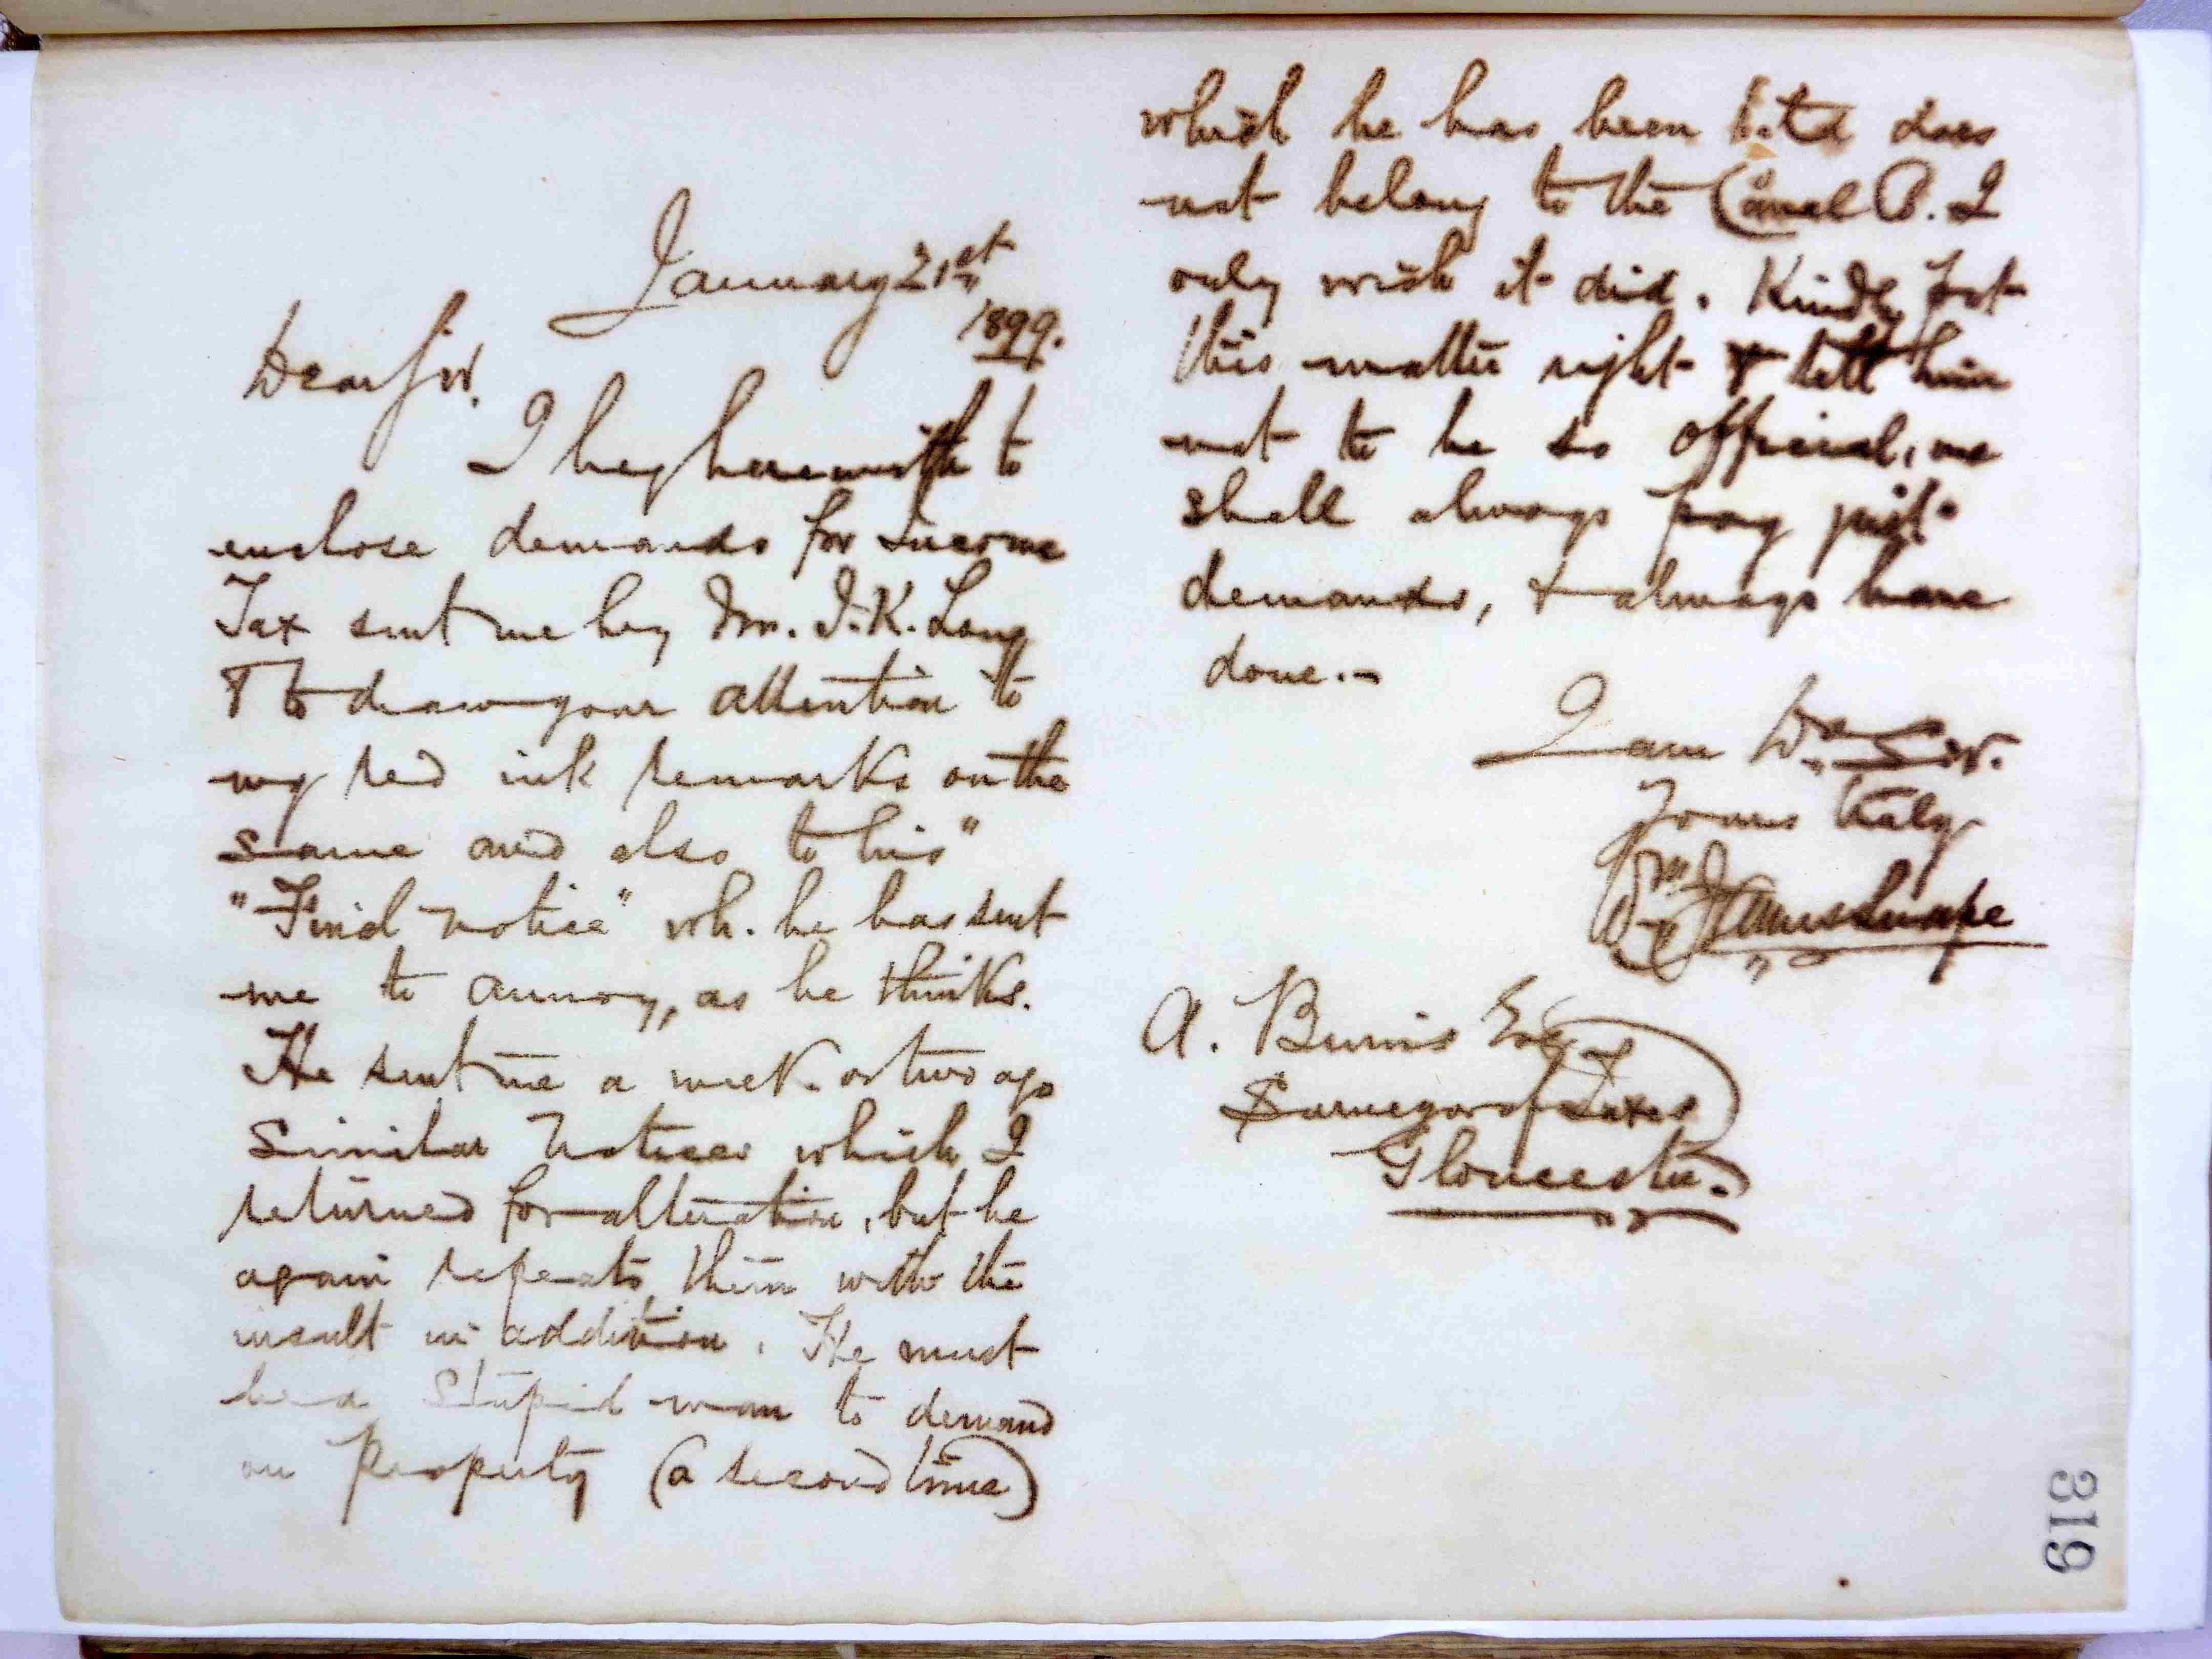 January 21st
1899.
Dear Sir.
I beg herewith to
enclose demands for Income
Tax sent me by Mr. J. K. Lang
& to draw your attention to
my red ink remarks on the
same and also to his "
"Final notice" wh. he has sent
me to annoy, as he thinks.
He sent me a week or two ago
Similar Notices which I
returned for alteration, but he
again repeats them with the
insult in addition. He must
be a Stupid man to demand
on Property (a second time)
which he has been told does
not belong to the Canal Co. I
only wish it did. Kindly put
this matter right & tell him
not to be so official, we
shall always pay just
demands, & always have
done.-
I am Dr Sir.
Yours truly
Wm James Snape
A. Esq
Surveyor of Taxes
Gloucester.
319